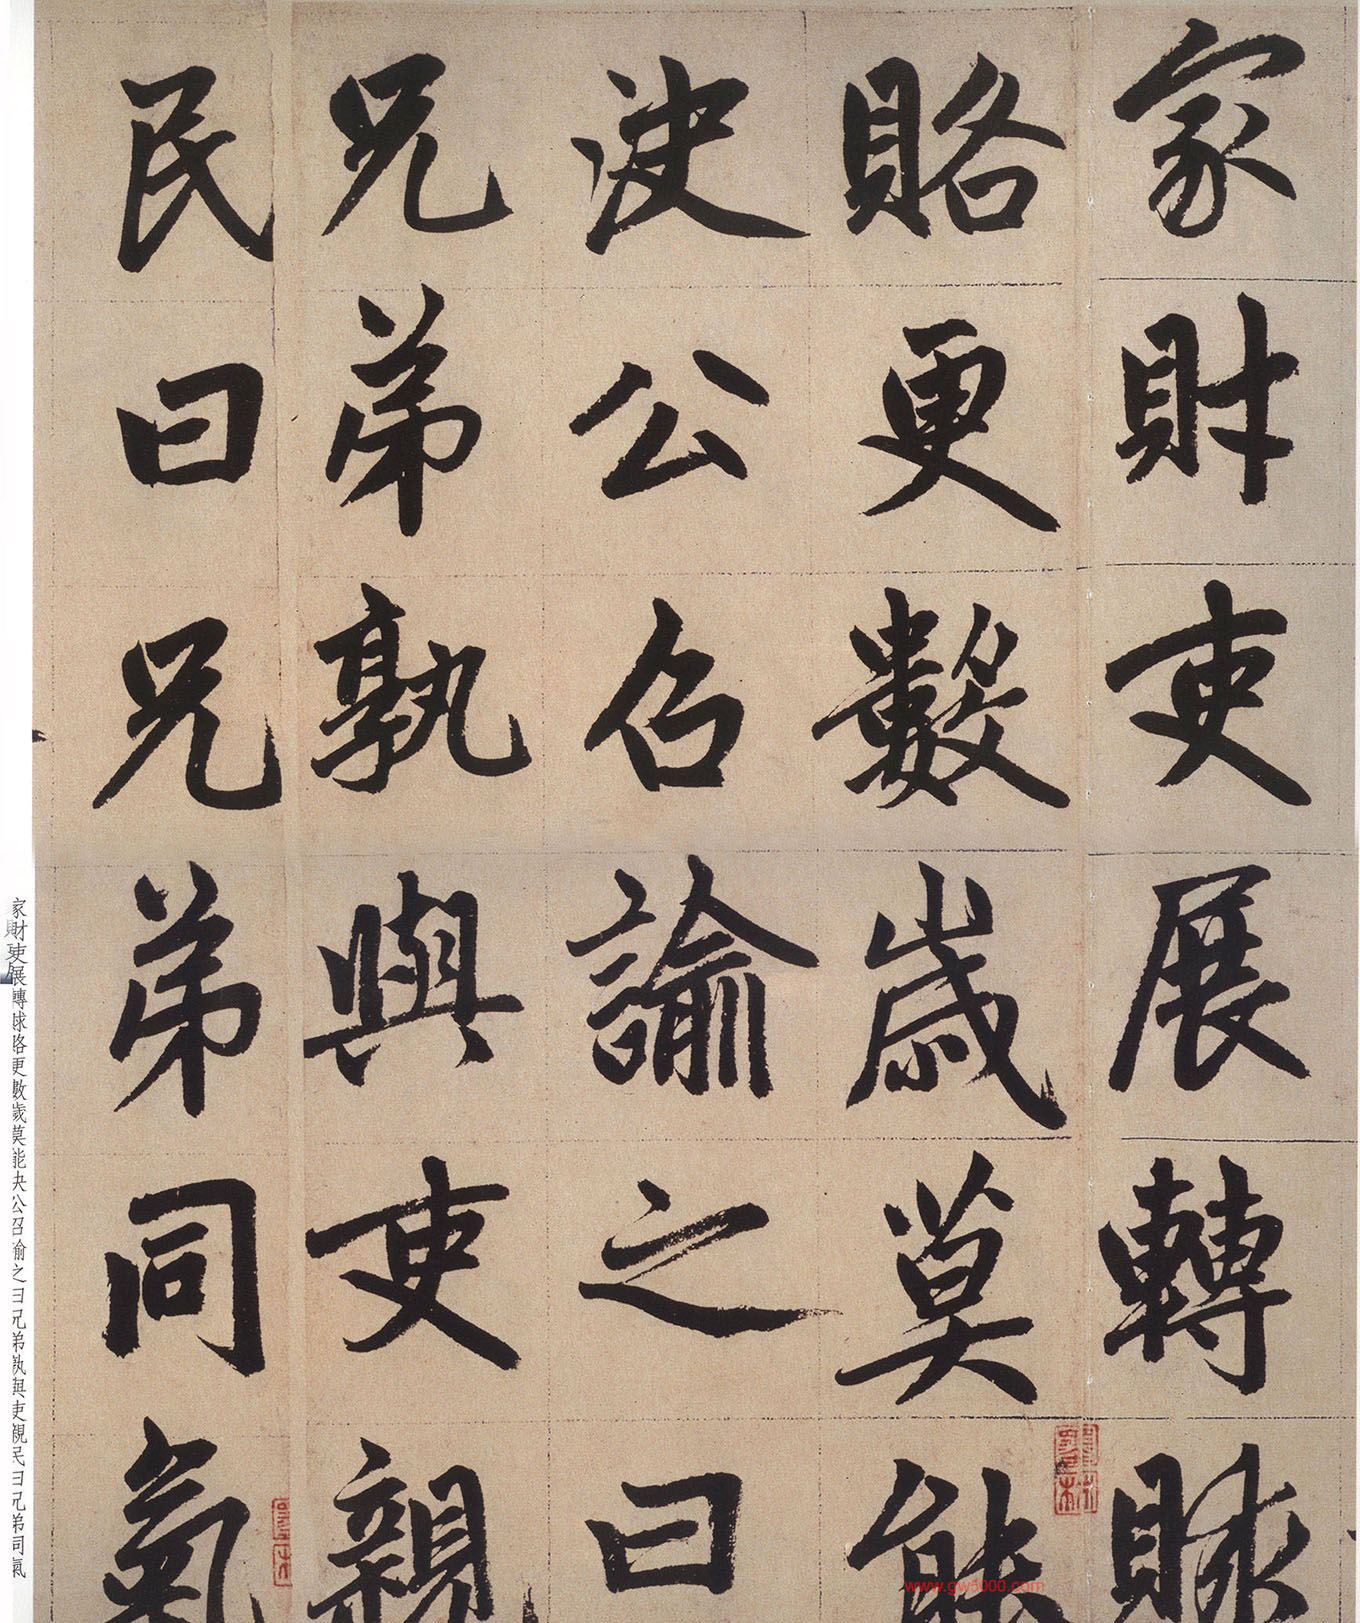 家財吏展轉賕
賂更數歲莫能
決公召諭之曰
兄弟孰與吏親
民曰兄弟同氣
家財吏展轉賕賂更數歲莫能決公召諭之曰兄弟孰與吏親民曰兄弟同氣
www.gw5000.com